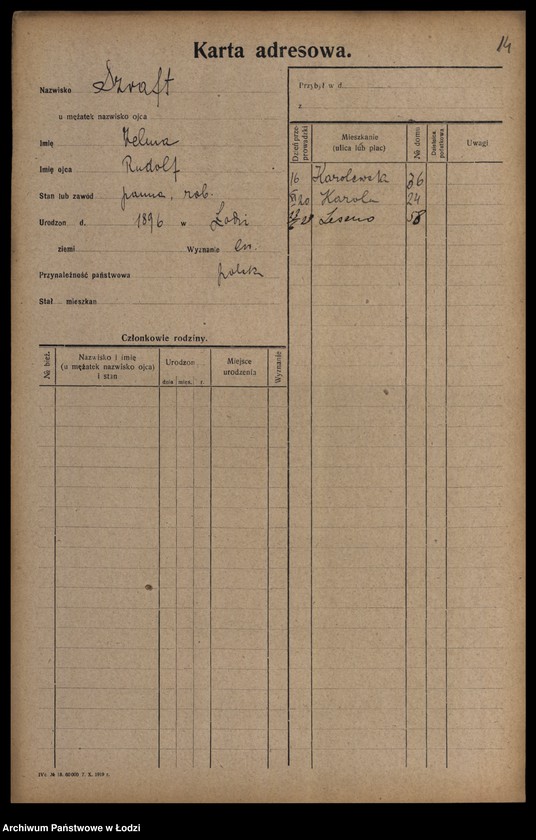 14
Karta adresowa.
Nazwisko Szraft
u mężatek nazwisko ojca
Imię
Imię ojca Rudolf
Stan lub zawód panna, rob.
Urodzon d. 1896 w Łodzi
ziemi Wyznanie ew.
Przynależność państwowa polska
Stał. mieszkan
Członkowie rodziny.
№ bież.
Nazwisko i imię
(u mężatek nazwisko ojca)
i stan
Urodzon
dnia mies. r.
Miejsce
urodzenia
Wyznanie
Przybył w d.
z
Dzień prze-
prowadzki
Mieszkanie
(ulica lub plac)
№ domu
Dzielnica
podatkowa
Uwagi
16 Karolewska 36
20 Karola 24
Leszno 58
Archiwum Państwowe w Łodzi